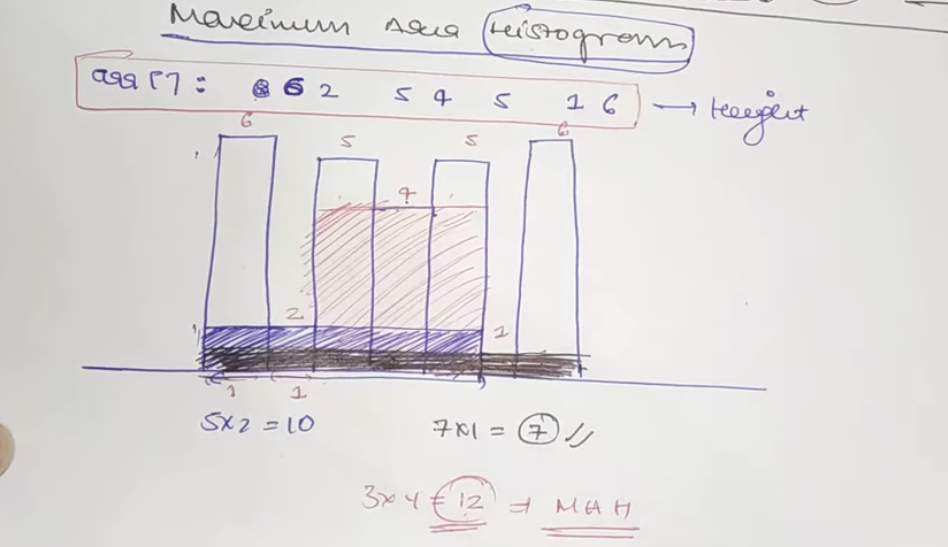 Maximum Area Histogram
arr[]: 6 2 5 4 5 1 6 → Height
6 5 5 6
4
2 1
1 1
5x2 = 10 7x1 = 7 //
3x4 = 12 ⇒ MAH